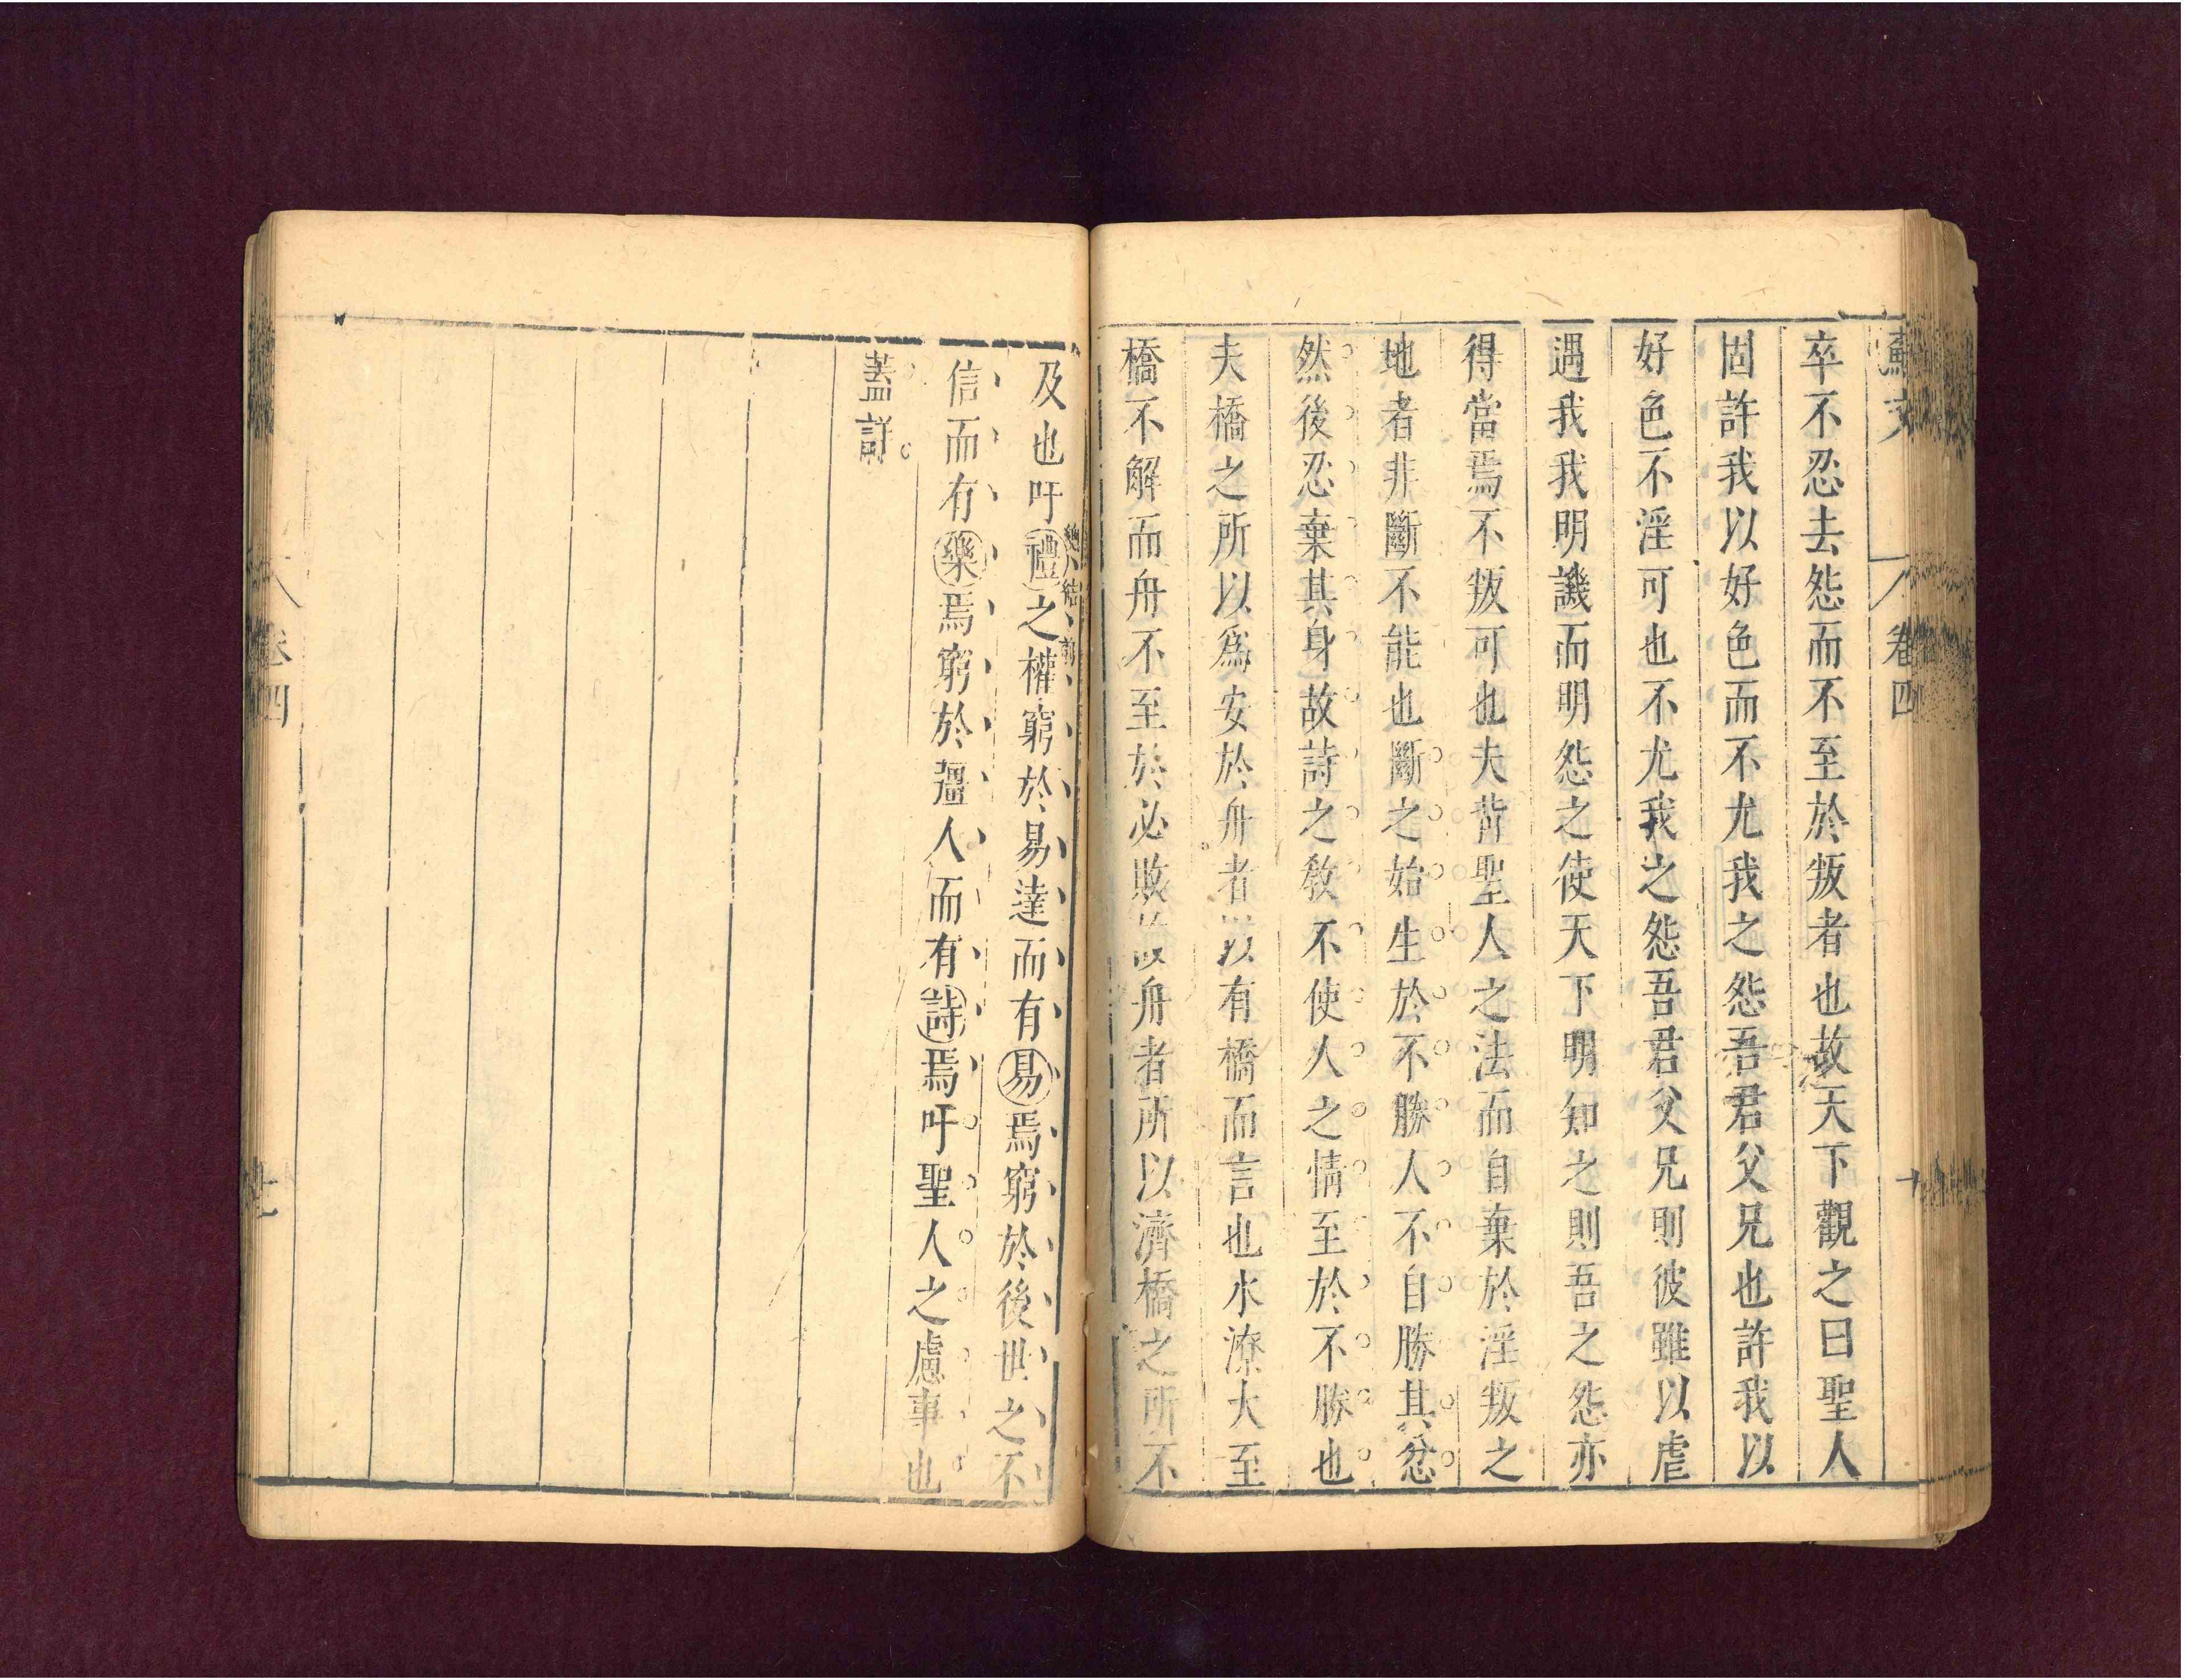 蘇文 卷四 十
卒不忍去怨而不至於叛者也故天下觀之曰聖人
固許我以好色而不尤我之怨吾君父兄也許我以
好色不淫可也不尤我之怨吾君父兄則彼雖以虐
遇我我明譏而明怨之使天下明知之則吾之怨亦
得當焉不叛可也夫背聖人之法而自棄於淫叛之
地者非斷不能也斷之始生於不勝人不自勝其忿
然後忍棄其身故詩之教不使人之情至於不勝也
夫橋之所以爲安於舟者以有橋而言也水潦大至
橋不解而舟不至於必敗故舟者所以濟橋之所不
及也吁禮之權窮於易達而有易焉窮於後世之不
總結前
信而有樂焉窮於彊人而有詩焉吁聖人之慮事也
蓋詳
卷四